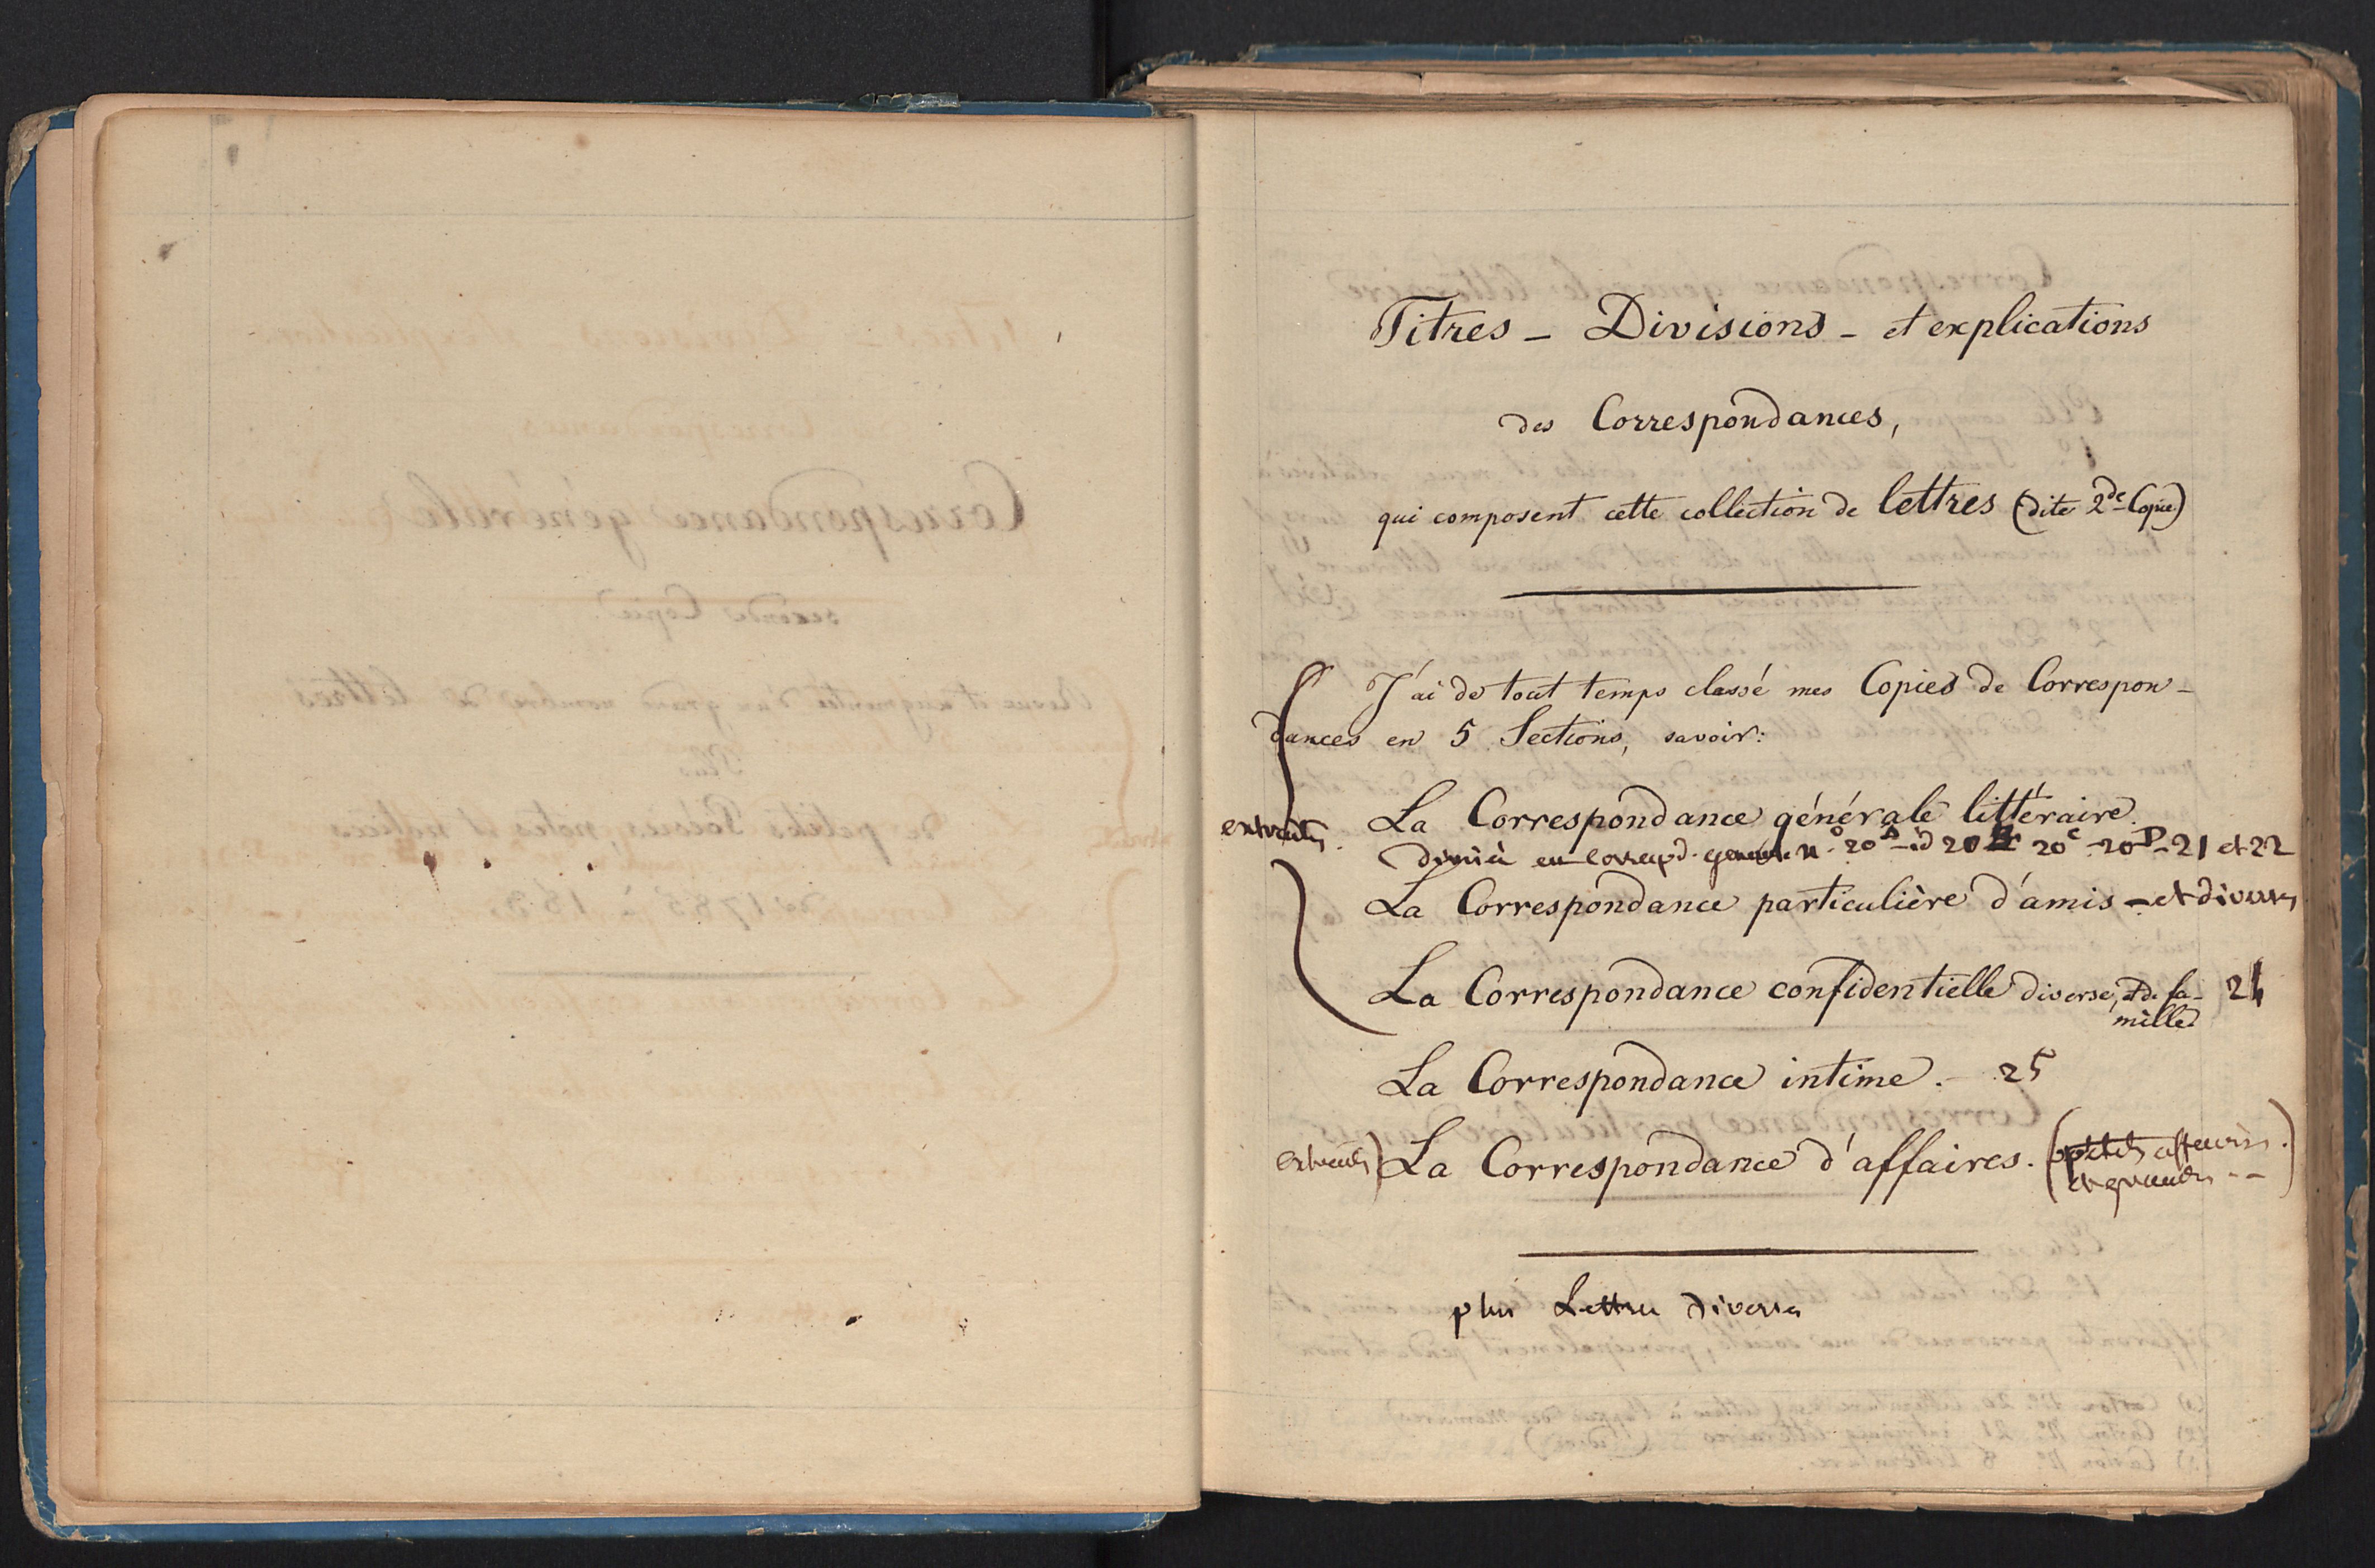 Titres – Divisions – et explications
des Correspondances,
qui composent cette collection de lettres (dite 2de Copie)
J'ai de tout temps classé mes Copies de Correspon-
dances en 5 Sections, savoir:
extraits. La Correspondance générale littéraire.
en corrresp. n° 20 A – id 20 20 C – 20 D – 21 et 22
La Correspondance particulière d'amis – et divers
La Correspondance confidentielle diverse, et de fa- 24
mille
La Correspondance intime. – 25
extraits) La Correspondance d'affaires. (petites affaires.
et grandes -- )
plus Lettres diverses